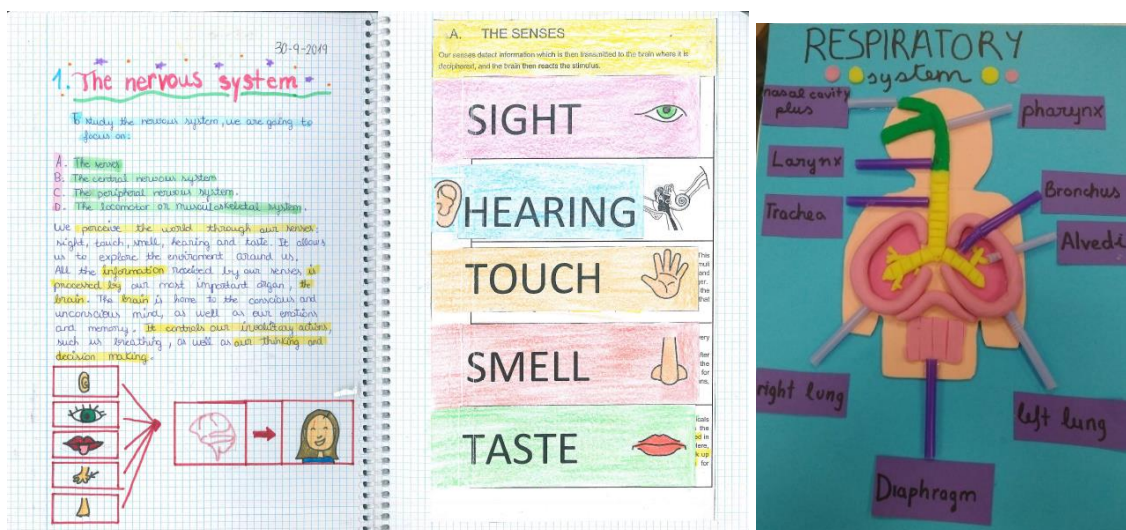 30-9-2019
1. The nervous system
To study the nervous system, we are going to
focus on:
A. The senses
B. The central nervous system
C. The peripheral nervous system.
D. The locomotor or musculoskeletal system.
We perceive the world through our senses:
sight, touch, smell, hearing and taste. It allows
us to explore the enviroment around us.
All the information received by our senses is
processed by our most important organ, the
brain. The brain is home to the conscious and
unconscious mind, as well as our emotions
and memory. It controls our involuntary actions,
such us breathing, as well as our thinking and
decision making.
A. THE SENSES
Our senses detect information which is then transmitted to the brain where it is
deciphered, and the brain then reacts the stimulus.
SIGHT
HEARING
TOUCH
SMELL
TASTE
RESPIRATORY
system
nasal cavity
plus
pharynx
Larynx
Bronchus
Trachea
Alveoli
right lung
left lung
Diaphragm